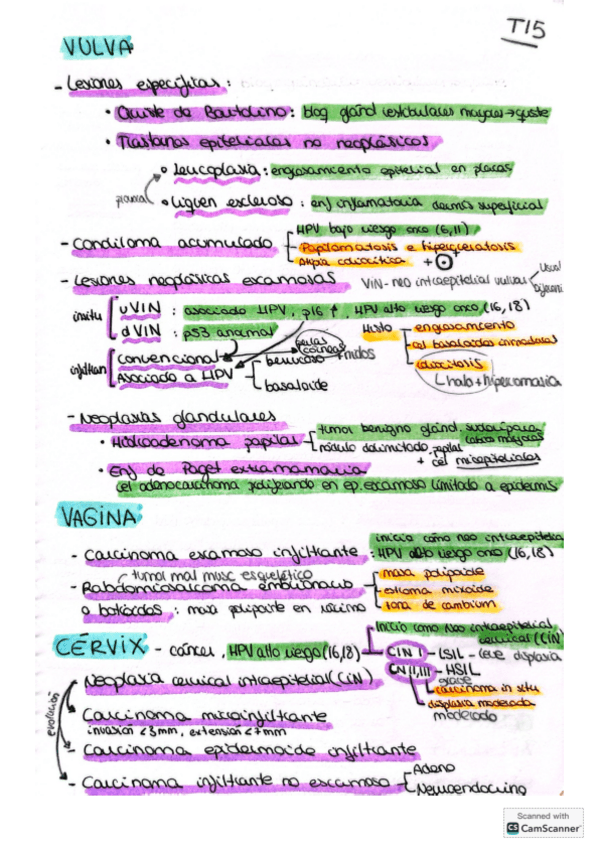 T15
VULVA
- Lesiones específicas :
• Quiste de Bartolino : bloq gland vestibulares mayores → quiste
• Trastornos epiteliales no neoplásicos
• Leucoplasia : engrosamiento epitelial en placas
• Liquen escleroso : enf inflamatoria dermis superficial
- Condiloma acumulado
HPV bajo riesgo onco (6,11)
Papilomatosis e hiperqueratosis
Atipia coilocítica +
- Lesiones neoplásicas escamosas
VIN - neo intraepitelial vulvar
usual
insitu
uVIN : asociado HPV, p16 ↑, HPV alto riesgo onco (16,18)
dVIN : p53 anormal
Histo
engrosamiento
cel basaloides inmaduras
coilocitosis
halo + hipercromasia
infiltran
Convencional
perlas córneas
+ nidos
Asociado a HPV
verrucoso
basaloide
- Neoplasias glandulares
• Hidroadenoma papilar
tumor benigno gland sudorípara
labios mayores
nódulo delimitado, papilar
+ cel mioepiteliales
• Enf de Paget extramamaria
cel adenocarcinoma proliferando en ep. escamoso limitado a epidermis
VAGINA
inicio como neo intraepitelia
- Carcinoma escamoso infiltrante : HPV alto riesgo onco (16,18)
tumor mal musc esquelético
- Rabdomiosarcoma embrionario
o botrioides : masa polipoide en racimo
masa polipoide
estroma mixoide
zona de cambium
CÉRVIX - cáncer, HPV alto riesgo (16,18)
Inicio como Neo intraepitelial
cervical (CIN
CIN I - LSIL - leve displasia
CIN II, III - HSIL
grave
carcinoma in situ
displasia moderada
moderado
evolución
Neoplasia cervical intraepitelial (CIN)
Carcinoma microinfiltrante
invasión < 3mm, extensión < 7mm
- Carcinoma epidermoide infiltrante
- Carcinoma infiltrante no escamoso
Adeno
Neuroendocrino
Scanned with
CS CamScanner